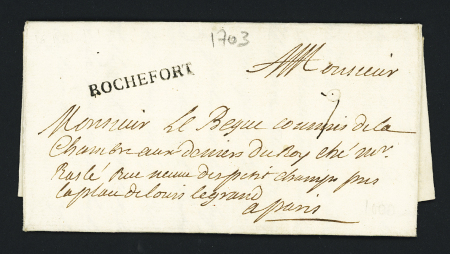 1703
ROCHEFORT
A Monsieur
7
Monsieur Le Begue commis de la
Chambre aux deniers du Roy ché Mr.
Raslé Rue neuve des petit champs pres
la place de Louis le grand
a paris